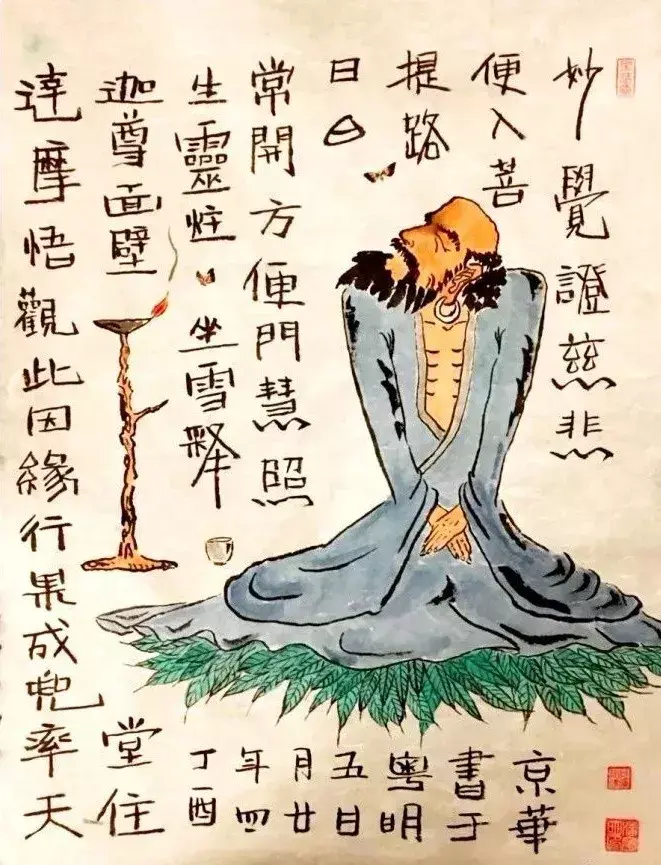 妙覺證慈悲
便入菩
提路
日
常開方便門慧照
生靈炷坐雪釋
迦尊面壁
達摩悟觀此因緣行果成兜率天
堂住
丁酉
年四
月廿
五日
粵明
書于
京華